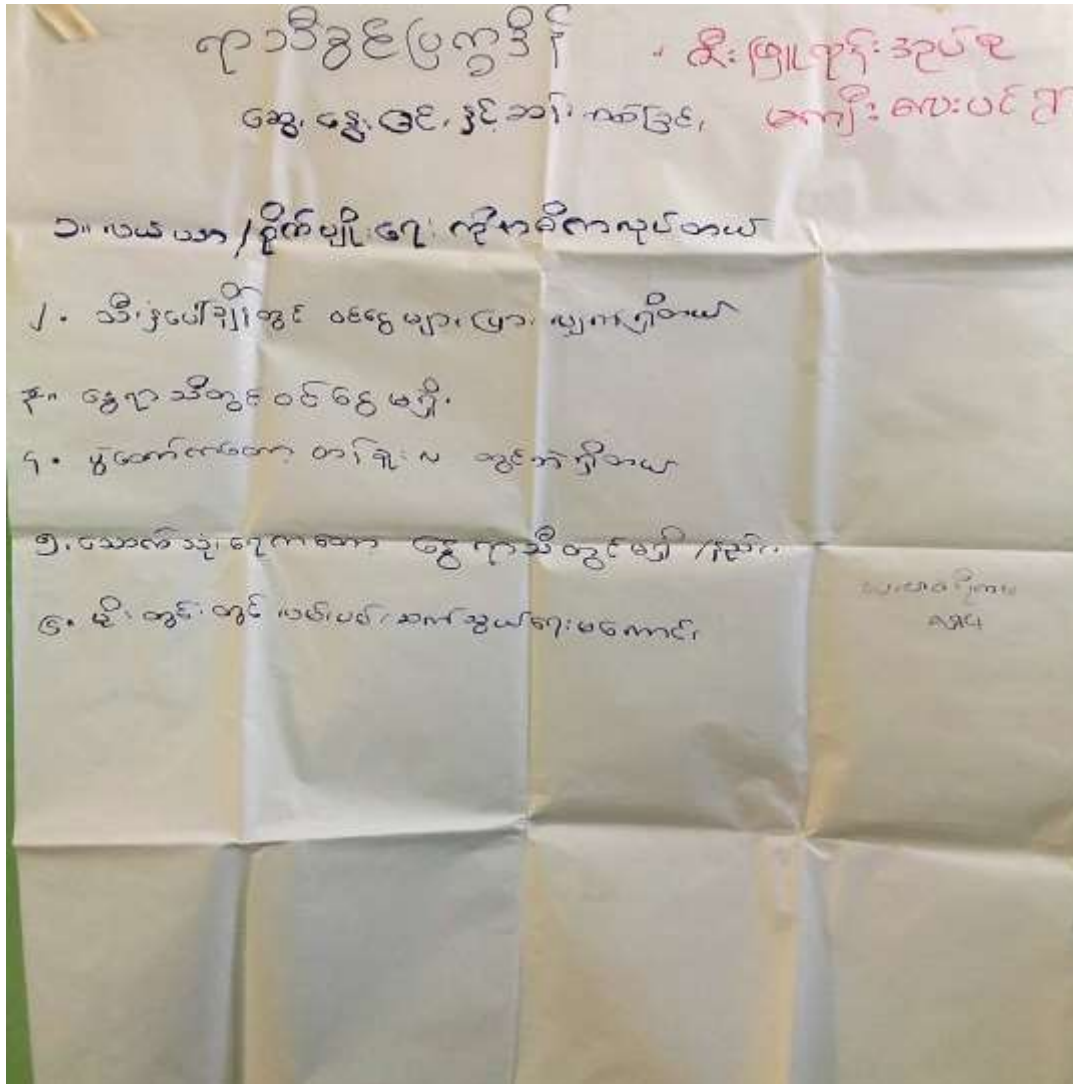 ရာသီခွင်ပြက္ခဒိန်
ဆီးဖြူကုန်း အုပ်စု
ဆွေး နွေး ခြင်း နှင့် ဆန်း
မကျီးလေးပင် ရွာ
၁။ လယ်ယာ / စိုက်ပျိုးရေး ကိုအဓိကလုပ်တယ်
၂. သီးနှံပေါ်ချိန်တွင် ဝင်ငွေ များပြား ရှိတယ်
၃။ နွေရာသီတွင် ဝင်ငွေ မရှိ.
၄. ပွဲတော်ကတော့ တန်ခူး လ တွင်ဘဲရှိတယ်
၅. သောက်သုံးရေကတော့ နွေ ရာသီ တွင် မရှိ / နည်း.
၆. မိုး တွင်း တွင် လမ်းပမ်း ဆက်သွယ်ရေး မကောင်း